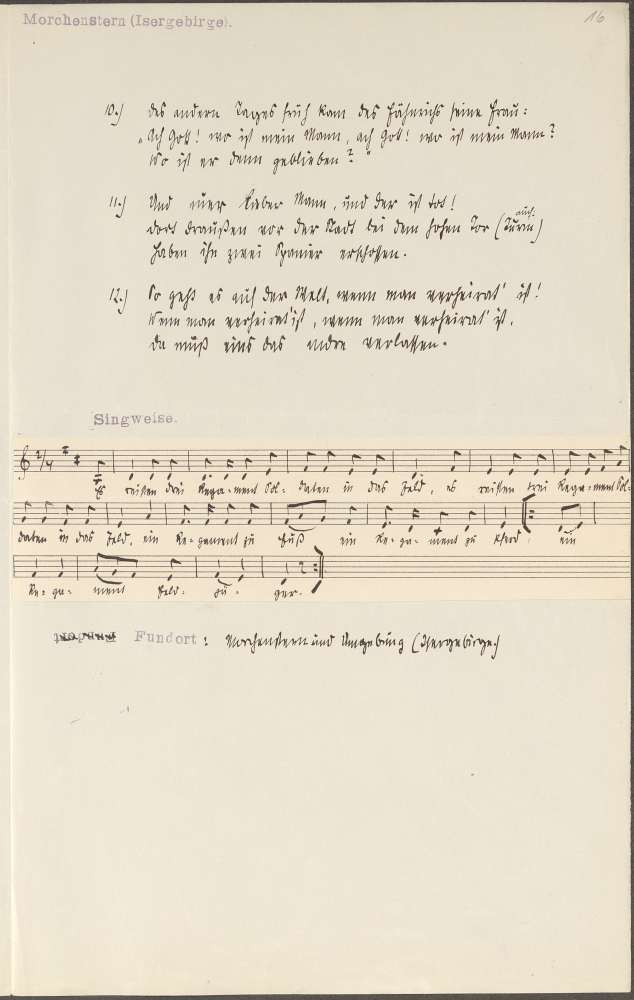 Morchenstern (Isergebirge).
16
10.) des andern Tages früh kam des Fähnrichs seine Frau:
"Ach Gott! wo ist mein Mann, ach Gott! wo ist mein Mann?
Wo ist er denn geblieben?"
11.) Und euer lieber Mann, und der ist tot!
auch:
dort draußen vor der Stadt bei dem hohen Tor (Turin)
Haben ihn zwei Spanier erschossen.
12.) So geht es auf der Welt, wenn man verheirat' ist!
Wenn man verheirat' ist, wenn man verheirat' ist.
Da muß eins das andre verlassen.
Singweise.
2/4
Es reisten drei Rega-ment Sol-daten in das Feld, es reisten drei Rega-ment Sol-
daten in das Feld, ein Re-gament zu Fuß ein Re-ga-ment zu Pferd, ein
Re-ga-ment Feld-jä-ger.
Fundort: Morchenstern und Umgebung (Isergebirge)